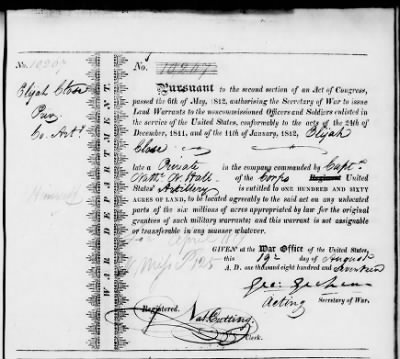 No. 10267
No. 10267
Elijah Close
Co. Art.
WAR DEPARTMENT.
Pursuant to the second section of an Act of Congress,
passed the 6th of May, 1812, authorising the Secretary of War to issue
Land Warrants to the noncommissioned Officers and Soldiers enlisted in
the service of the United States, conformably to the acts of the 24th of
December, 1811, and of the 11th of January, 1812, Elijah
Close
late a Private in the company commanded by Capt.
Hall of the Corps Regiment United
States' Artillery is entitled to ONE HUNDRED AND SIXTY
ACRES OF LAND, to be located agreeably to the said act on any unlocated
parts of the six millions of acres appropriated by law for the original
grantees of such military warrants; and this warrant is not assignable
or transferable in any manner whatever.
GIVEN at the War Office of the United States,
this 19 day of August
A. D. one thousand eight hundred and seventeen
Geo: Graham
Acting Secretary of War.
Registered. Nat. Cutting
Clerk.